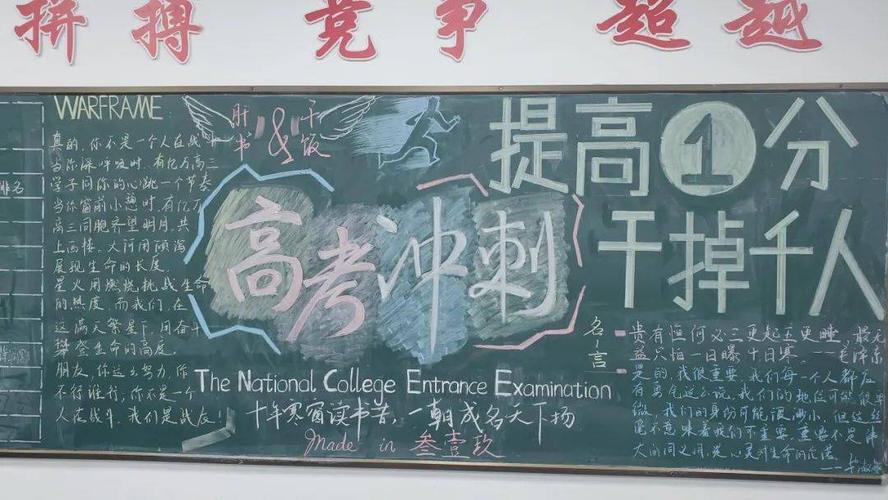 拼搏 竞争 超越
排名
WARFRAME
真的，你不是一个人在战斗
当你深呼吸时，有亿万高三
学子同你的心跳一个节奏
当你窗前小憩时，有亿万
高三同胞齐望明月，共
上西楼。大河用倾泻
展现生命的长度，
星火用燃烧挑战生命
的热度，而我们，在
这满天繁星下，用奋斗
攀登生命的高度。
朋友，你这么努力，你
不行谁行，你不是一个
人在战斗，我们是战友！
肝书 & 干饭
高考冲刺
The National College Entrance Examination
十年寒窗读书苦，一朝成名天下扬
Made in 叁壹玖
提高1分
干掉千人
名言
贵有恒何必三更起五更睡，最无
益只怕一日曝十日寒。——毛泽东
是的，我很重要。我们每一个人都应
有勇气这么说。我们的地位可能很卑
微，我们的身份可能很渺小，但这丝
毫不意味着我们不重要。重要不是伟
大的同义词，是心灵对生命的允诺。